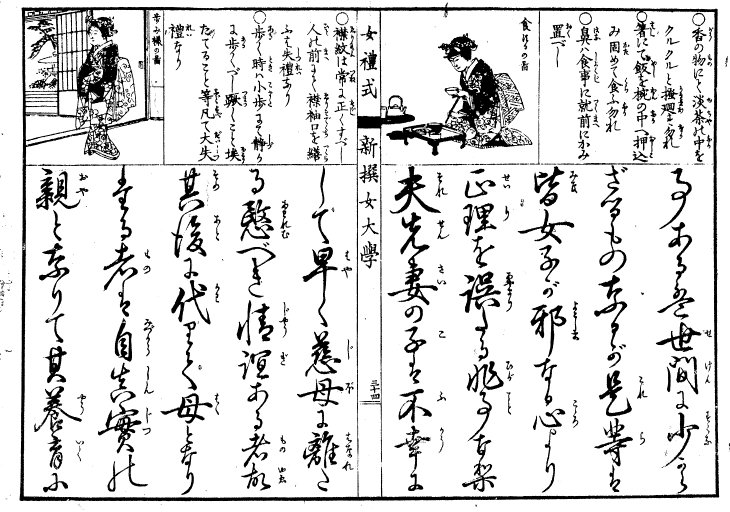 ○香の物にて淡茶の中を
クルクルと撫廻す勿れ
○箸にて飯を椀の中へ押込
み周めて食ふ勿れ
○鼻ハ食事に就前にかみ
置べし
食事の図
事ある者世間に少から
ざるもの なるが是等は
皆女子が邪なる心より
正理を誤りたる非事なり梨
夫先妻の子は不幸に
女禮式
新撰女大學
三十四
○襟紋は常に正くすべし
人の前にて襟袖口を繕
ふハ失禮なり
○歩く時ハ小歩にて静か
に歩くべし 騒くこと埃
たてること等凡て大失
禮なり
歩み様の図
して早く慈母に離た
る愍べき情誼ある者故
其後に代りて母となり
たる者は自ら真實の
親となりて其養育に